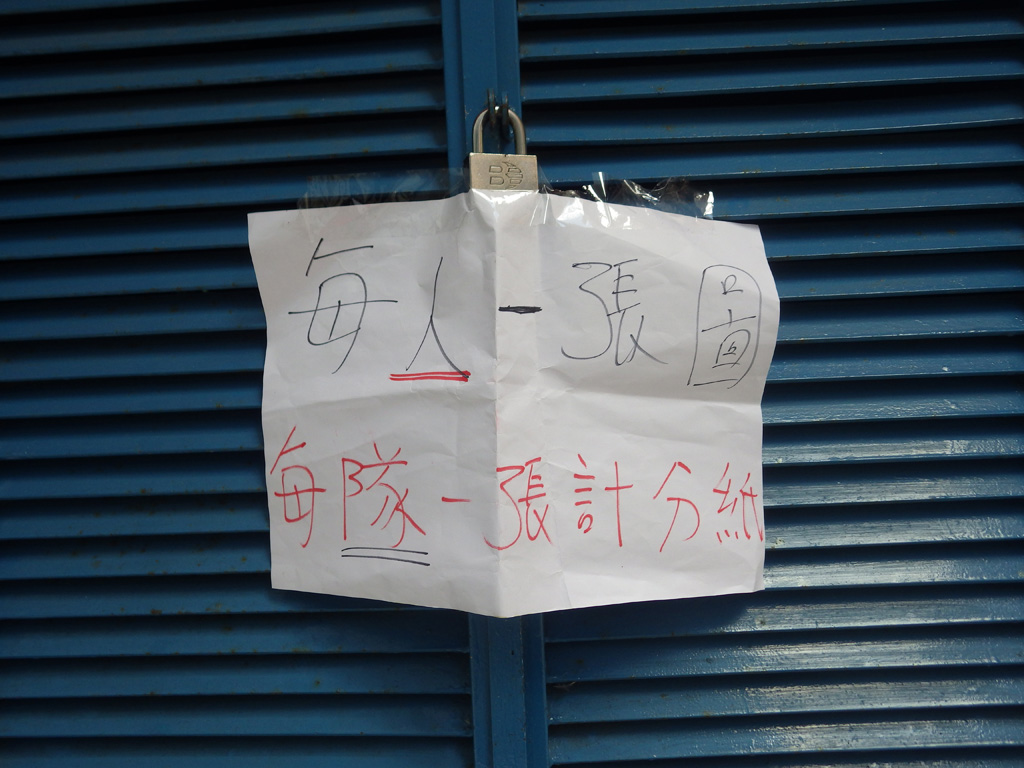 每人一張圖
每隊一張計分紙